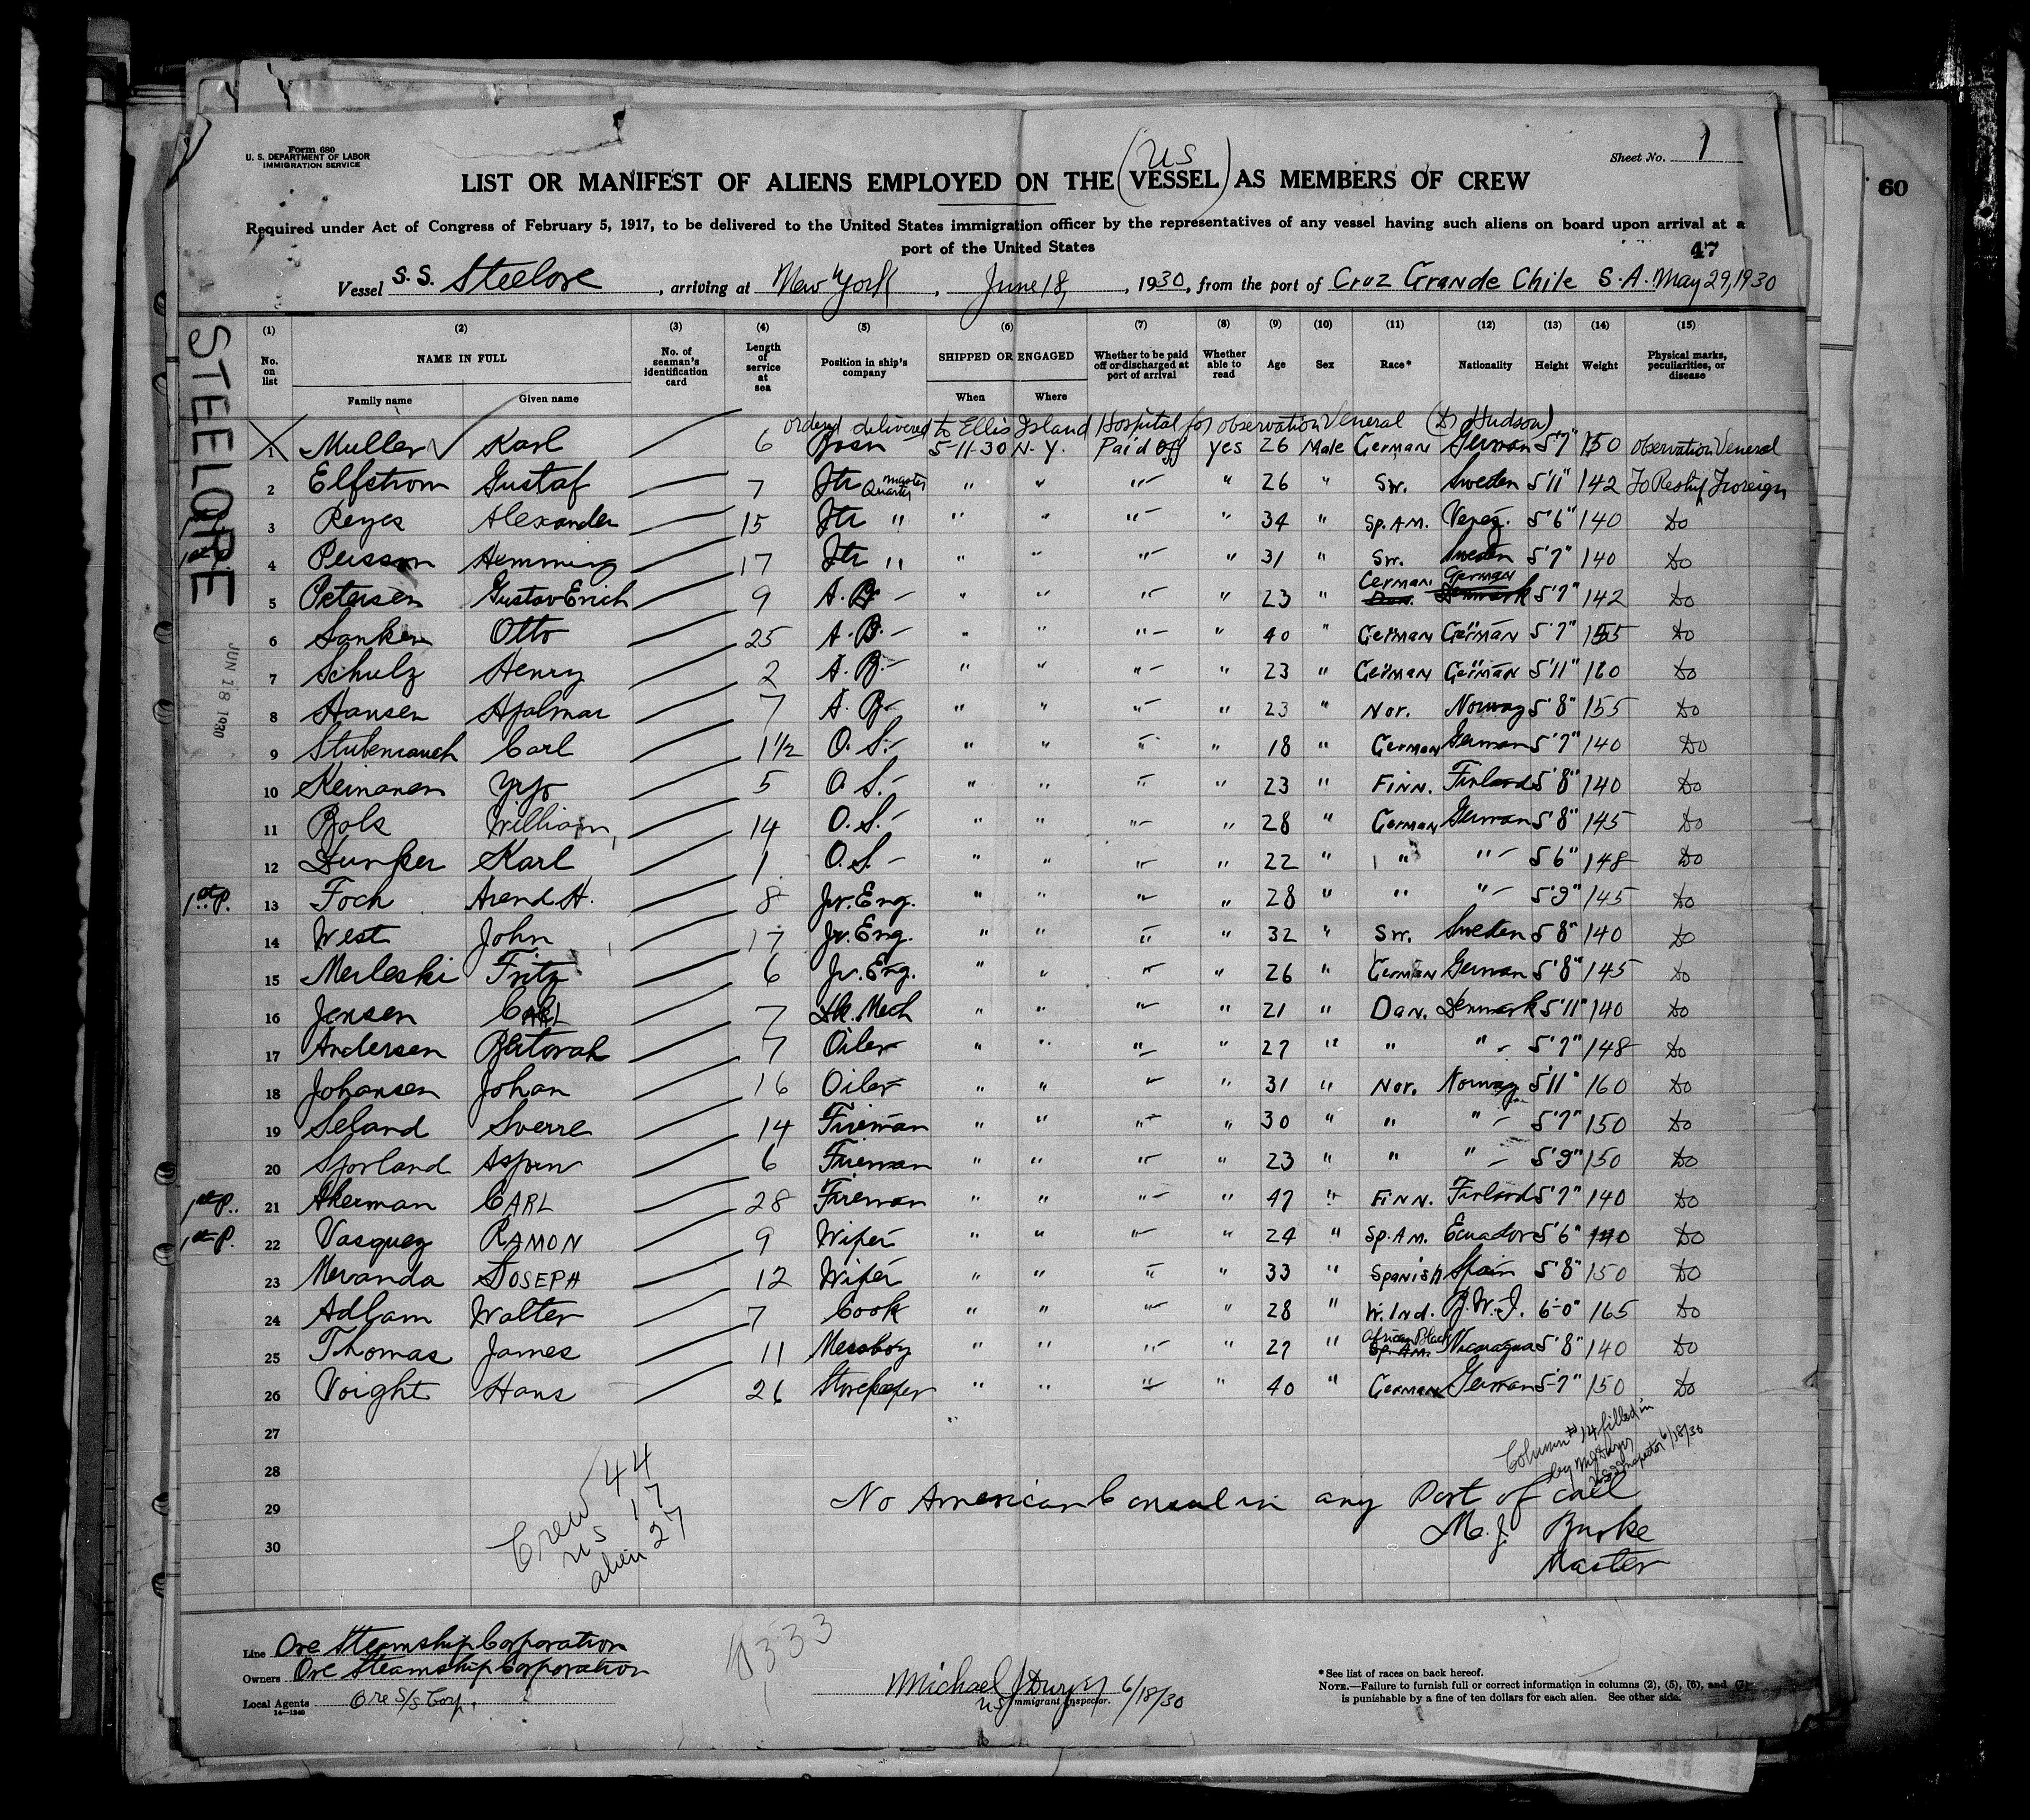 Form 680
U. S. DEPARTMENT OF LABOR
IMMIGRATION SERVICE
Sheet No. 1
60
(US
LIST OR MANIFEST OF ALIENS EMPLOYED ON THE VESSEL) AS MEMBERS OF CREW
Required under Act of Congress of February 5, 1917, to be delivered to the United States immigration officer by the representatives of any vessel having such aliens on board upon arrival at a
port of the United States
47
Vessel S.S. Steelore, arriving at New York, June 18, 1930, from the port of Cruz Grande Chile S.A. May 29, 1930
STEELORE
JUN 18 1930
(1) (2) (3) (4) (5) (6) (7) (8) (9) (10) (11) (12) (13) (14) (15)
No. on list NAME IN FULL No. of seaman's identification card Length of service at sea Position in ship's company SHIPPED OR ENGAGED Whether to be paid off or discharged at port of arrival Whether able to read Age Sex Race* Nationality Height Weight Physical marks, peculiarities, or disease
Family name Given name When Where
ordered delivered to Ellis Island Hospital for observation Veneral (Dr Hudson)
1 Muller Karl 6 Bosn 5-11-30 N.Y. Paid Off yes 26 Male German German 5'7" 150 Observation Veneral
2 Elfstrom Gustaf 7 Quarter master " " " " 26 " Sw. Sweden 5'11" 142 To Reship Foreign
3 Reyes Alexander 15 " " " " " 34 " Sp. Am. Venez. 5'6" 140 Do
4 Persson Hemming 17 " " " " " 31 " Sw. Sweden 5'7" 140 Do
5 Petersen Gustav Erich 9 A.B. " " " " 23 " German German 5'7" 142 Do
6 Sanken Otto 25 A.B. " " " " 40 " German German 5'7" 155 Do
7 Schulz Henry 2 A.B. " " " " 23 " German German 5'11" 180 Do
8 Hansen Hjalmar 7 A.B. " " " " 23 " Nor. Norway 5'8" 155 Do
9 Stubenrauch Carl 1½ O.S. " " " " 18 " German German 5'7" 140 Do
10 Keinanen Yrjo 5 O.S. " " " " 23 " Finn. Finland 5'8" 140 Do
11 Bols William 14 O.S. " " " " 28 " German German 5'8" 145 Do
12 Dunker Karl 1 O.S. " " " " 22 " " " 5'6" 148 Do
1st P. 13 Foch Arend H. 8 Jr. Eng. " " " " 28 " " " 5'9" 145 Do
14 West John 17 Jr. Eng. " " " " 32 " Sw. Sweden 5'8" 140 Do
15 Merleski Fritz 6 Jr. Eng. " " " " 26 " German German 5'8" 145 Do
16 Jensen Carl 7 Dk. Mech " " " " 21 " Dan. Denmark 5'11" 140 Do
17 Andersen 7 Oiler " " " " 27 " " " 5'7" 148 Do
18 Johansen Johan 16 Oiler " " " " 31 " Nor. Norway 5'11" 160 Do
19 Seland Sverre 14 Fireman " " " " 30 " " " 5'7" 150 Do
20 Sporland Aspen 6 Fireman " " " " 23 " " " 5'9" 150 Do
1st P. 21 Akerman CARL 28 Fireman " " " " 47 " Finn. Finland 5'7" 140 Do
1st P. 22 Vasquez RAMON 9 Wiper " " " " 24 " Sp. Am. Ecuador 5'6" 140 Do
23 Meranda JOSEPH 12 Wiper " " " " 33 " Spanish Spain 5'8" 150 Do
24 Adlam Walter 7 Cook " " " " 28 " W. Ind. B.W.I. 6'-0" 165 Do
25 Thomas James 11 Messboy " " " " 27 " African Black Sp. Am. Nicaragua 5'8" 140 Do
26 Voight Hans 26 Storekeeper " " " " 40 " German German 5'-7" 150 Do
27
28
29
30
Column # 14 filled in
by M J Dwyer
US Inspector 6/18/30
Crew 44
US 17
alien 27
No American Consul in any Port of call
M. J. Burke
Master
Line Ore Steamship Corporation
Owners Ore Steamship Corporation
Local Agents Ore S/S Corp.
14—1240
Michael J Dwyer 6/18/30
US Immigrant Inspector. 6/18/30
*See list of races on back hereof.
NOTE.—Failure to furnish full or correct information in columns (2), (5), (6), and (7)
is punishable by a fine of ten dollars for each alien. See other side.